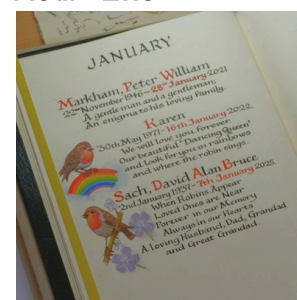 JANUARY
Markham, Peter William
22nd November 1946 – 28th January 2021
A gentle man and a gentleman;
An enigma to his loving family.
Karen
30th May 1971 – 16th January 2022
We will love you Forever
Our beautiful "Dancing Queen"
and look for you in rainbows
and where the robin sings.
Sach, David Alan Bruce
2nd January 1937 – 7th January 2025
When Robins Appear
Loved Ones are Near
Forever in our Memory
Always in our Hearts
A loving Husband, Dad, Grandad
and Great Grandad.